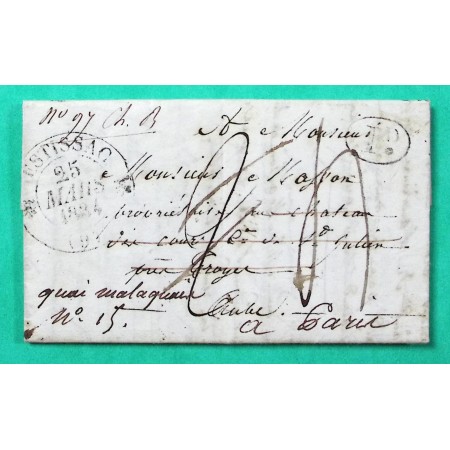 N° 97 Ch. B
ESTISSAC
25
MARS
(9)
A Monsieur
Monsieur Masson
propriétaire au chateau
des cour Cne de St Julien
près Troyes
quai malaquais
Aube.
N° 15.
a Paris